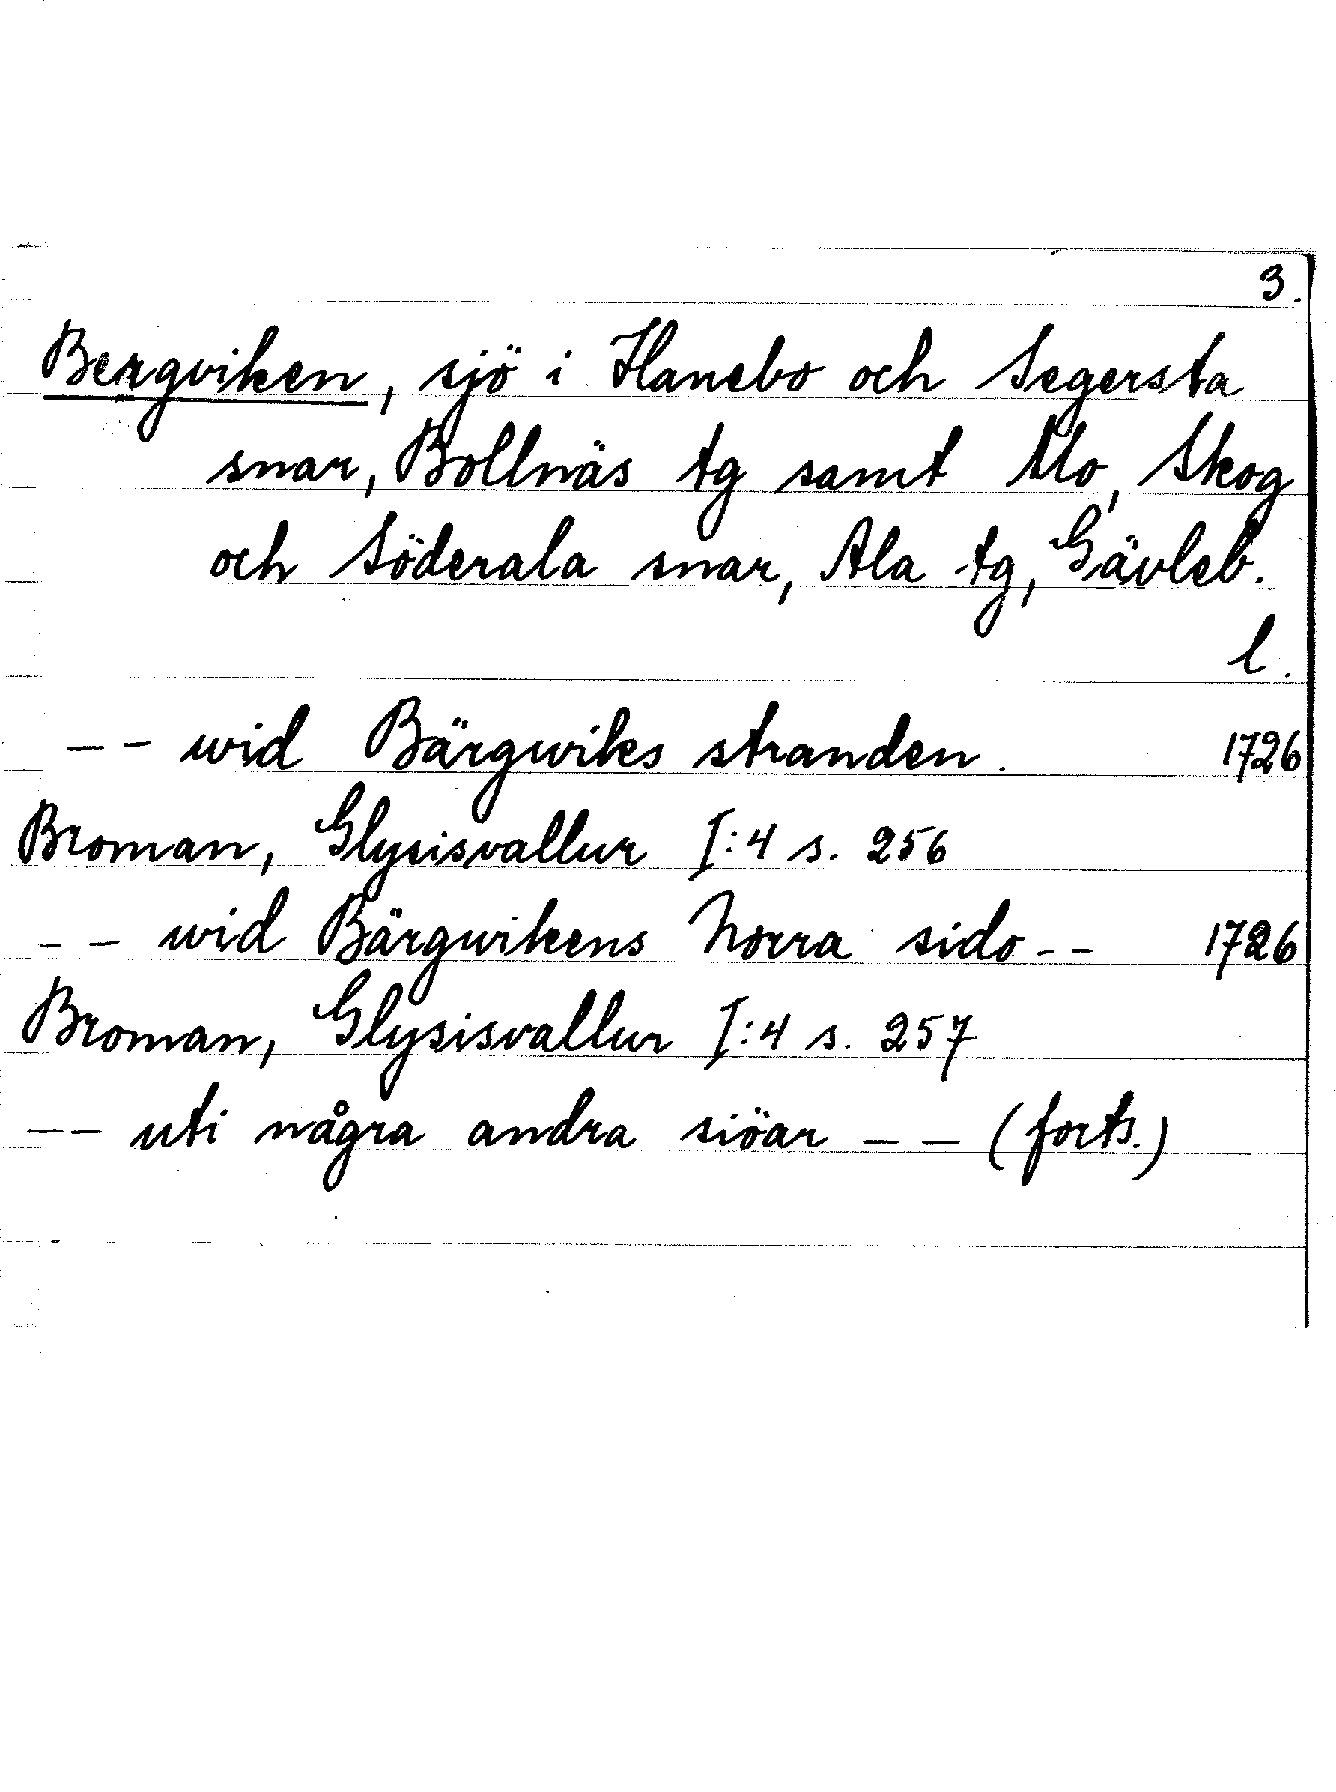 3.
Bergviken, sjö i Hanebo och Segersta
snar, Bollnäs tg samt Mo, Skog
och Söderala snar, Ala tg, Gävleb.
l.
-- wid Bärgwiks stranden. 1726
Broman, Glysisvallur I:4 s. 256
-- wid Bärgwikens Norra sido -- 1726
Broman, Glysisvallur I:4 s. 257
-- uti några andra siöar -- (forts.)